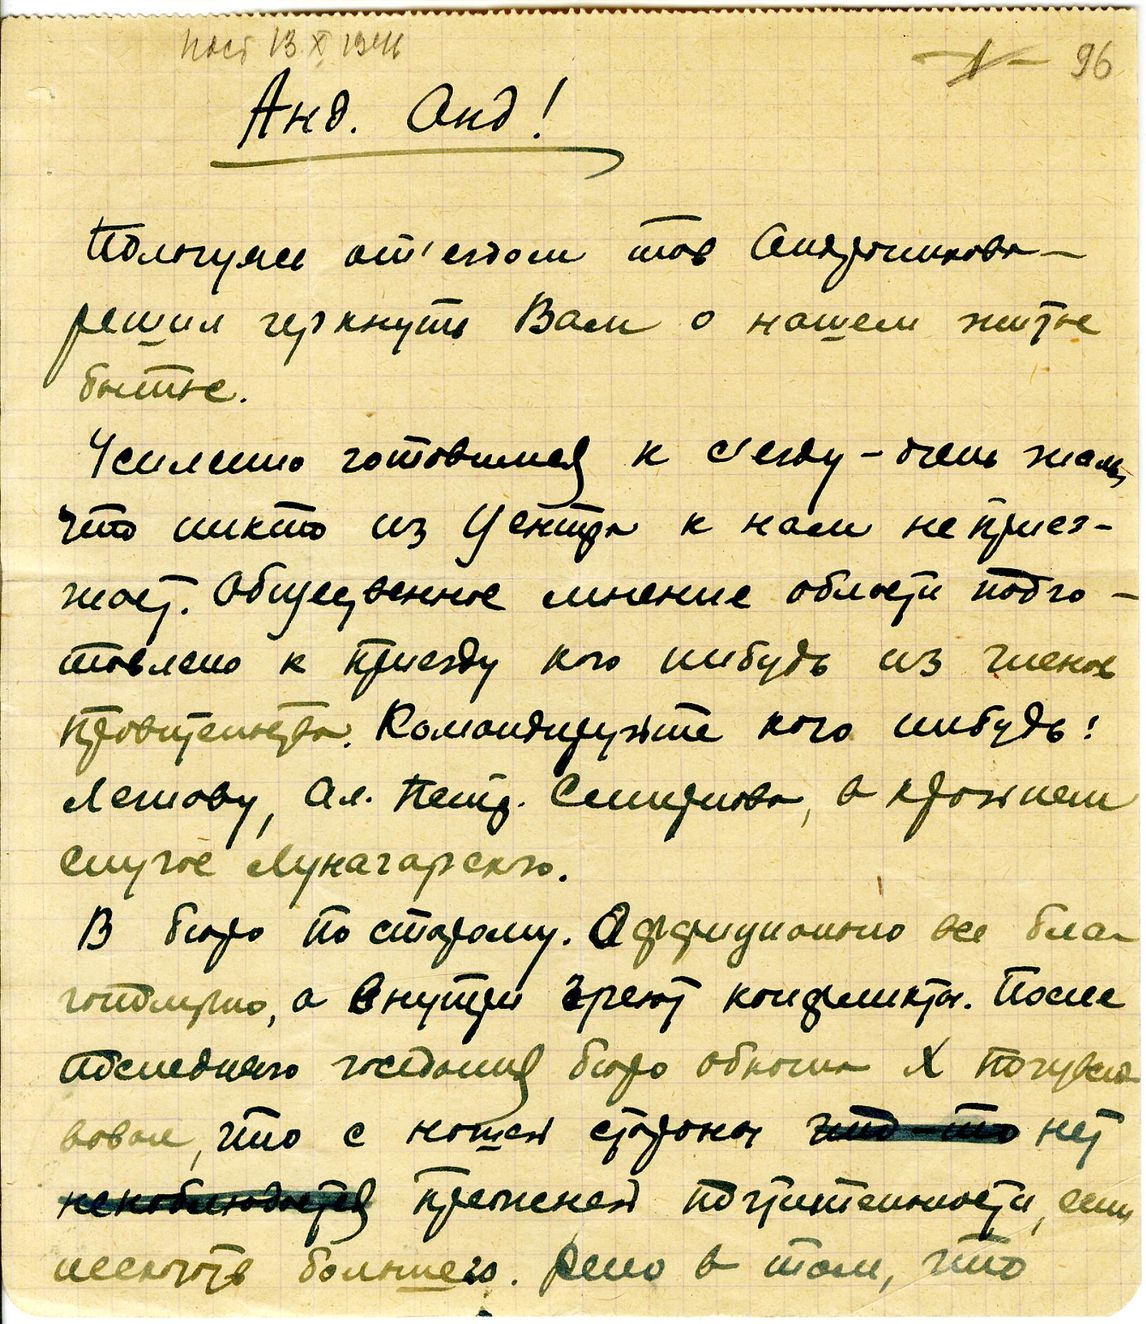 96
Анд. Анд!
Пользуясь от'ездом тов Андроникова –
решил черкнуть Вам о нашем житье
бытье.
Усиленно готовимся к с'езду – очень жаль,
что никто из Центра к нам не приез-
жает. Общественное мнение области подго-
товлено к приезду кого нибудь из членов
правительства. Командируйте кого нибудь!
Лежаву, Ал. Петр. Смирнова, в крайнем
случае Луначарского.
В бюро по старому. Оффициально все бла-
гополучно, а внутри зреют конфликты. После
последнего заседания бюро обкома X почувст
вовал, что с нашей стороны что-то нет
не наблюдается прежней почтительности, если
несказать большего. Дело в том, что